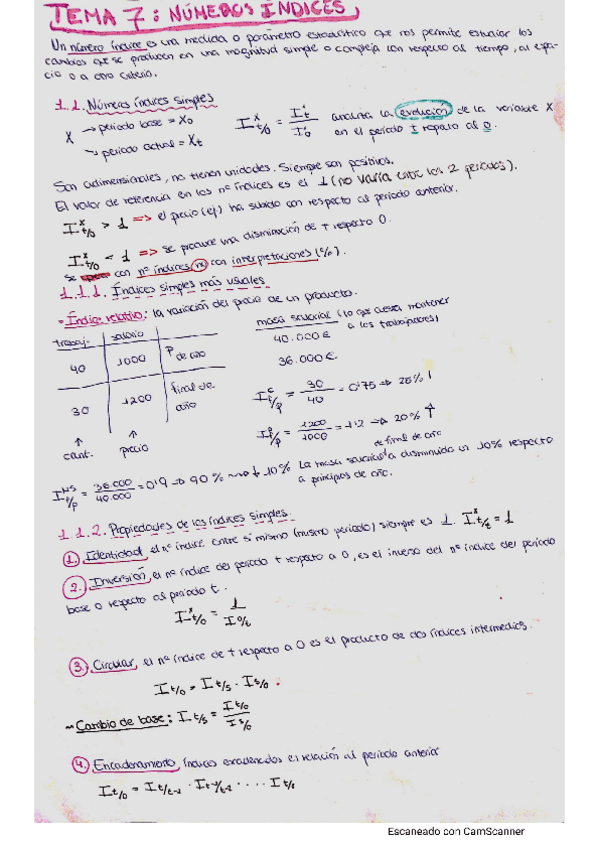 TEMA 7: NÚMEROS ÍNDICES
Un número índice es una medida o parámetro estadístico que nos permite estudiar los
cambios que se producen en una magnitud simple o compleja con respecto al tiempo, al espa-
cio o a otro criterio.
1.1. Números índices simples
X → periodo base = X₀
→ periodo actual = Xt
cuantifica la evolución de la variable X
en el periodo t respecto al 0.
Son adimensionales, no tienen unidades. Siempre son positivos.
El valor de referencia en los nº índices es el 1 (no varía entre los 2 periodos).
I^x t/0 > 1 => el precio (ej) ha subido con respecto al periodo anterior.
I^x t/0 < 1 => se produce una disminución de t respecto 0.
con nº índices no con interpretaciones (%).
1.1.1. Índices simples más usuales
- Índice relativo: la variación del precio de un producto.
trabaj. salario
40 1000 P de año
30 1200 final de año
↑ cant. ↑ precio
masa salarial (lo que cuesta mantener
a los trabajadores)
40.000€
36.000€
I^c t/p = 30/40 = 0'75 → 25% ↓
I^p t/p = 1200/1000 = 1'2 → 20% ↑
I^MS t/p = 36.000/40.000 = 0'9 → 90% ↓ 10% La masa salarial de final de año a disminuido un 10% respecto
a principios de año.
1.1.2. Propiedades de los índices simples.
1. Identidad, el nº índice entre si mismo (mismo periodo) siempre es 1. I^x t/t = 1
2. Inversión, el nº índice del periodo t respecto a 0, es el inverso del nº índice del periodo
base 0 respecto al periodo t.
I^x t/0 = 1/I 0/t
3. Circular, el nº índice de t respecto a 0 es el producto de dos índices intermedios.
I t/0 = I t/s · I s/0.
~ Cambio de base: I t/s = I t/0 / I s/0
4. Encadenamiento, índices encadenados es relación al periodo anterior
I t/0 = I t/t-1 · I t-1/t-2 · ...
Escaneado con CamScanner